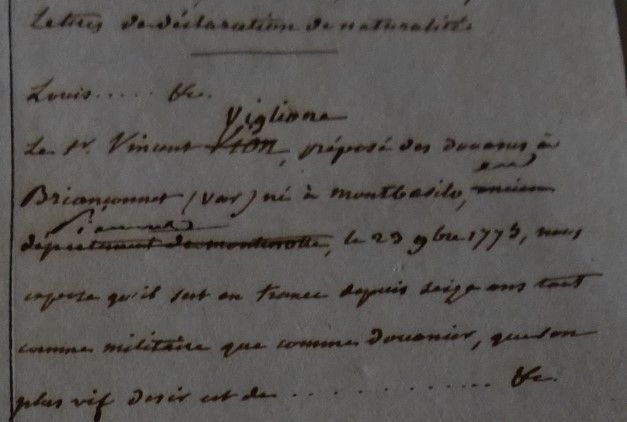 Lettres de déclaration de naturalité
Louis..... &c.
Viglione
Le Sr. Vincent Vion, préposé des douanes à
Briançonnet (Var) né à montbasilo, ancien
département de montenotte, le 23 9bre 1773, nous
expose qu'il sert en france depuis seize ans tant
comme militaire que comme douanier, que son
plus vif desir est de ................ &c.